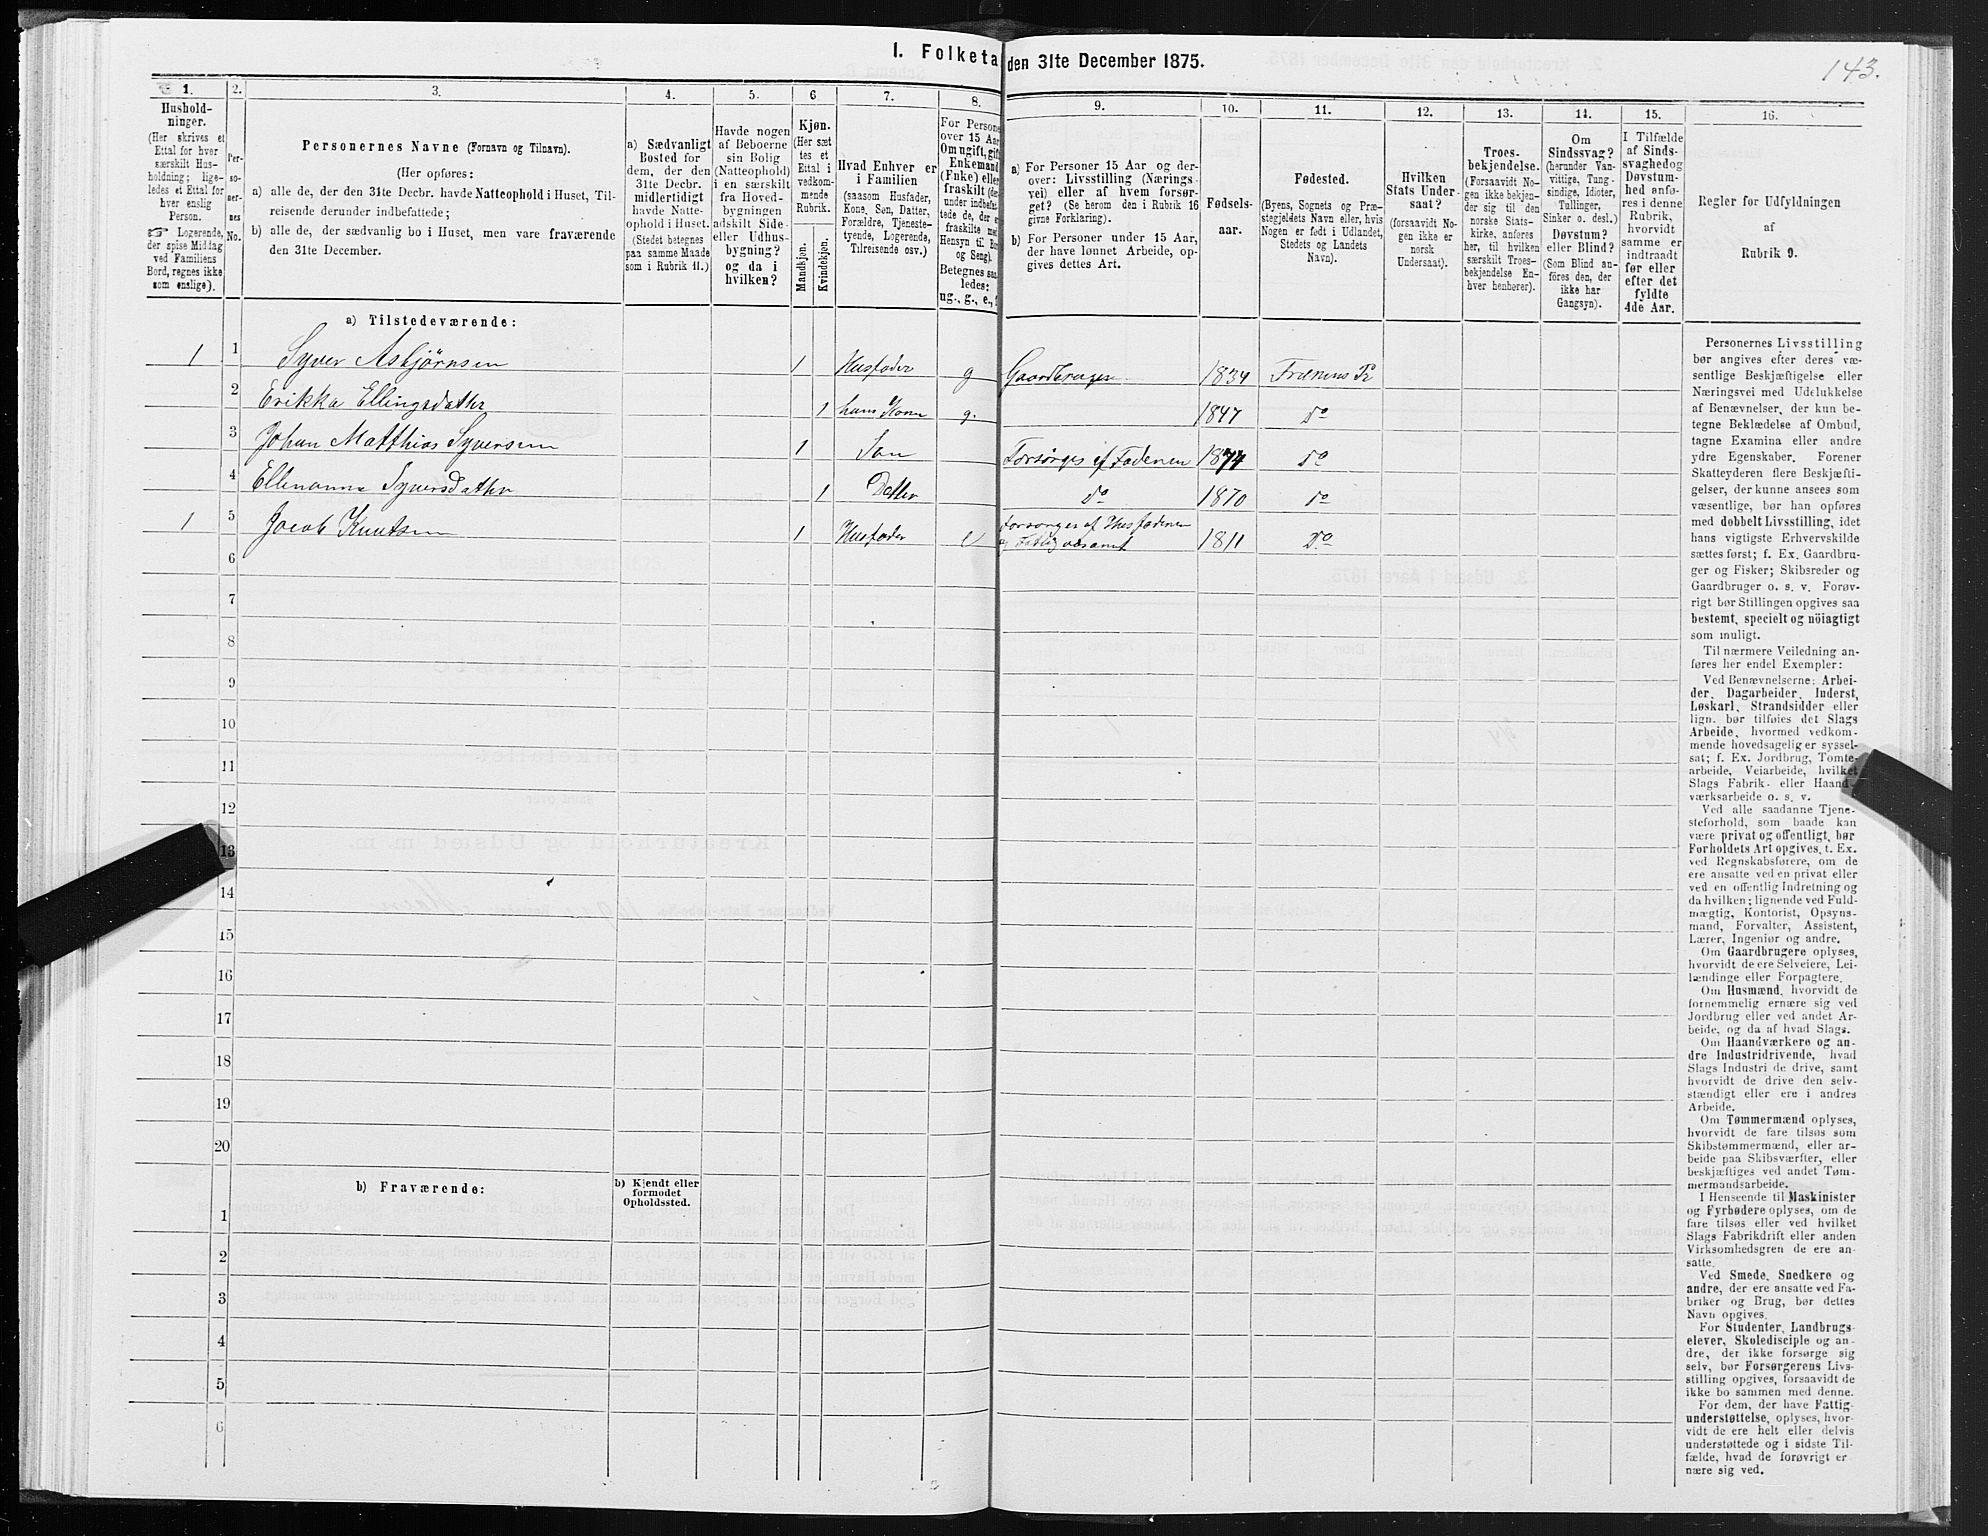 I. Folketa den 31te December 1875.
143.
1. 2. 3. 4. 5. 6 7. 8. 9. 10. 11. 12. 13. 14. 15. 16.
Hushold-
ninger.
(Her skrives et
Ettal for hver
særskilt Hus-
holdning; lige-
ledes et Ettal for
hver enslig
Person.
☞ Logerende,
der spise Middag
ved Familiens
Bord, regnes ikke
som enslige).
Per-
so-
ner-
nes
No.
Personernes Navne (Fornavn og Tilnavn).
(Her opføres:
a) alle de, der den 31te Decbr. havde Natteophold i Huset, Til-
reisende derunder indbefattede;
b) alle de, der sædvanlig bo i Huset, men vare fraværende
den 31te December.
a) Sædvanligt
Bosted for
dem, der den
31te Decbr.
midlertidigt
havde Natte-
ophold i Huset.
(Stedet betegnes
paa samme Maade
som i Rubrik 11.)
Havde nogen
af Beboerne
sin Bolig
(Natteophold)
i en særskilt
fra Hoved-
bygningen
adskilt Side-
eller Udhus-
bygning?
og da i
hvilken?
Kjøn.
(Her sæt
tes et
Ettal i
vedkom-
mende
Rubrik.
Mandkjøn.
Kvindekjøn.
Hvad Enhver er
i Familien
(saasom Husfader,
Kone, Søn, Datter,
Forældre, Tjeneste-
tyende, Logerende,
Tilreisende osv.)
For Persone
over 15 Aar
Om ugift, gift
Enkemand
(Enke) eller
fraskilt (der
under indbefat
tede de, der er
fraskilte med
Hensyn til Bor
og Seng).
Betegnes saa
ledes:
ug., g., e., f
a) For Personer 15 Aar og der-
over: Livsstilling (Nærings-
vei) eller af hvem forsør-
get? (Se herom den i Rubrik 16
givne Forklaring).
b) For Personer under 15 Aar,
der have lønnet Arbeide, op-
gives dettes Art.
Fødsels-
aar.
Fødested.
(Byens, Sognets og Præ-
stegjeldets Navn eller, hvis
Nogen er født i Udlandet,
Stedets og Landets
Navn).
Hvilken
Stats Under-
saat?
(forsaavidt No-
gen ikke er
norsk
Undersaat).
Troes-
bekjendelse.
(Forsaavidt No-
gen ikke bekjen-
der sig til den
norske Stats-
kirke, anføres
her, til hvilken
særskilt Troes-
bekjendelse En-
hver henhører).
Om
Sindssvag?
(herunder Van-
vittige, Tung-
sindige, Idioter,
Tullinger,
Sinker o. desl.)
Døvstum?
eller Blind?
(Som Blind an-
føres den, der
ikke har
Gangsyn).
I Tilfælde
af Sinds-
svaghed og
Døvstum-
hed anfø-
res i denne
Rubrik,
hvorvidt
samme er
indtraadt
før eller
efter det
fyldte
4de Aar.
Regler for Udfyldningen
af
Rubrik 9.
a) Tilstedeværende:
1 1 Syver Asbjørnsen 1 Husfader g Gaardbruger 1834 Frænens Pr
2 Erikka Ellingsdatter 1 hans Kone g. 1847 do
3 Johan Matthias Syversen 1 Søn Forsørges af Faderen 1874 do
4 Ellenanna Syversdatter 1 Datter do 1870 do
1 5 Jacob Knutsen 1 Husfader e forsørges af Husfaderen
1811 Do
6
7
8
9
10
11
12
13
14
15
16
17
18
19
20
b) Fraværende:
b) Kjendt eller
formodet
Opholdssted.
1
2
3
4
5
6
Personernes Livsstilling
bør angives efter deres væ-
sentlige Beskjæftigelse eller
Næringsvei med Udelukkelse
af Benævnelser, der kun be-
tegne Beklædelse af Ombud,
tagne Examina eller andre
ydre Egenskaber. Forener
Skatteyderen flere Beskjæfti-
gelser, der kunne ansees som
væsentlige, bør han opføres
med dobbelt Livsstilling, idet
hans vigtigste Erhvervskilde
sættes først; f. Ex. Gaardbru-
ger og Fisker; Skibsreder og
Gaardbruger o. s. v. Forøv-
rigt bør Stillingen opgives saa
bestemt, specielt og nöiagtigt
som muligt.
Til nærmere Veiledning an-
føres her endel Exempler:
Ved Benævnelserne: Arbei-
der, Dagarbeider, Inderst,
Løskarl, Strandsidder eller
lign. bør tilføies det Slags
Arbeide, hvormed vedkom-
mende hovedsagelig er syssel-
sat; f. Ex. Jordbrug, Tomte-
arbeide, Veiarbeide, hvilket
Slags Fabrik- eller Haand-
værksarbeide o. s. v.
Ved alle saadanne Tjene-
steforhold, som baade kan
være privat og offentligt, bør
Forholdets Art opgives, t. Ex.
ved Regnskabsførere, om de
ere ansatte ved en privat eller
ved en offentlig Indretning og
da hvilken; lignende ved Fuld-
mægtig, Kontorist, Opsyns-
mand, Forvalter, Assistent,
Lærer, Ingeniør og andre.
Om Gaardbrugere oplyses,
hvorvidt de ere Selveiere, Lei-
lændinge eller Forpagtere.
Om Husmænd, hvorvidt de
fornemmelig ernære sig ved
Jordbrug eller ved andet Ar-
beide, og da af hvad Slags.
Om Haandværkere og an-
dre Industridrivende, hvad
Slags Industri de drive, samt
hvorvidt de drive den selv-
stændigt eller ere i andres
Arbeide.
Om Tømmermænd oplyses,
hvorvidt de fare tilsøs som
Skibstømmermænd, eller ar-
beide paa Skibsværfter, eller
beskjæftiges ved andet Tøm-
mermandsarbeide.
I Henseende til Maskinister
og Fyrbødere oplyses, om de
fare tilsøs eller ved hvilket
Slags Fabrikdrift eller anden
Virksomhedsgren de ere an-
satte.
Ved Smede, Snedkere og
andre, der ere ansatte ved Fa-
briker og Brug, bør dettes
Navn opgives.
For Studenter, Landbrugs-
elever, Skoledisciple og an-
dre, der ikke forsørge sig
selv, bør Forsørgerens Livs-
stilling opgives, forsaavidt de
ikke bo sammen med denne.
For dem, der have Fattig-
understøttelse, oplyses, hvor-
vidt de ere helt eller delvis
understøttede og i sidste Til-
fælde, hvad de forøvrigt er
nære sig ved.